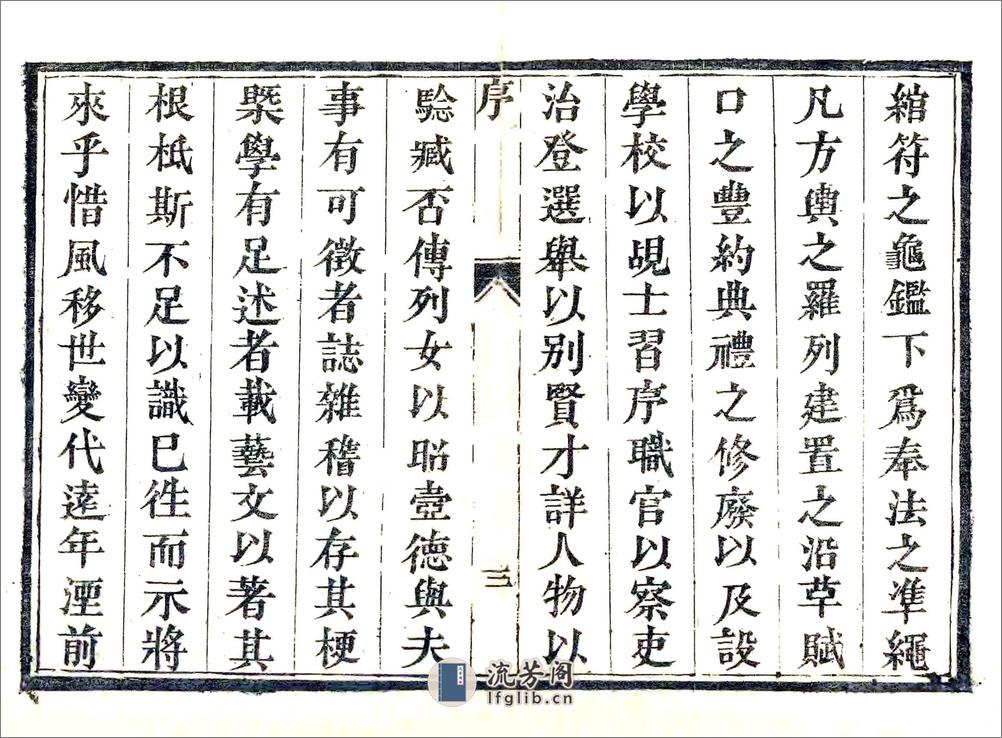 綰符之龜鑑下爲奉法之凖繩
凡方輿之羅列建置之沿草賦
口之豐約典禮之修廢以及設
學校以覘士習序職官以察吏
治登選舉以別賢才詳人物以
序
三
騐臧否傳列女以昭壼德與夫
事有可徵者誌雜稽以存其梗
槩學有足述者載藝文以著其
根柢斯不足以識已徃而示將
來乎惜風移世變代逺年湮前
流芳阁
lfglib.cn